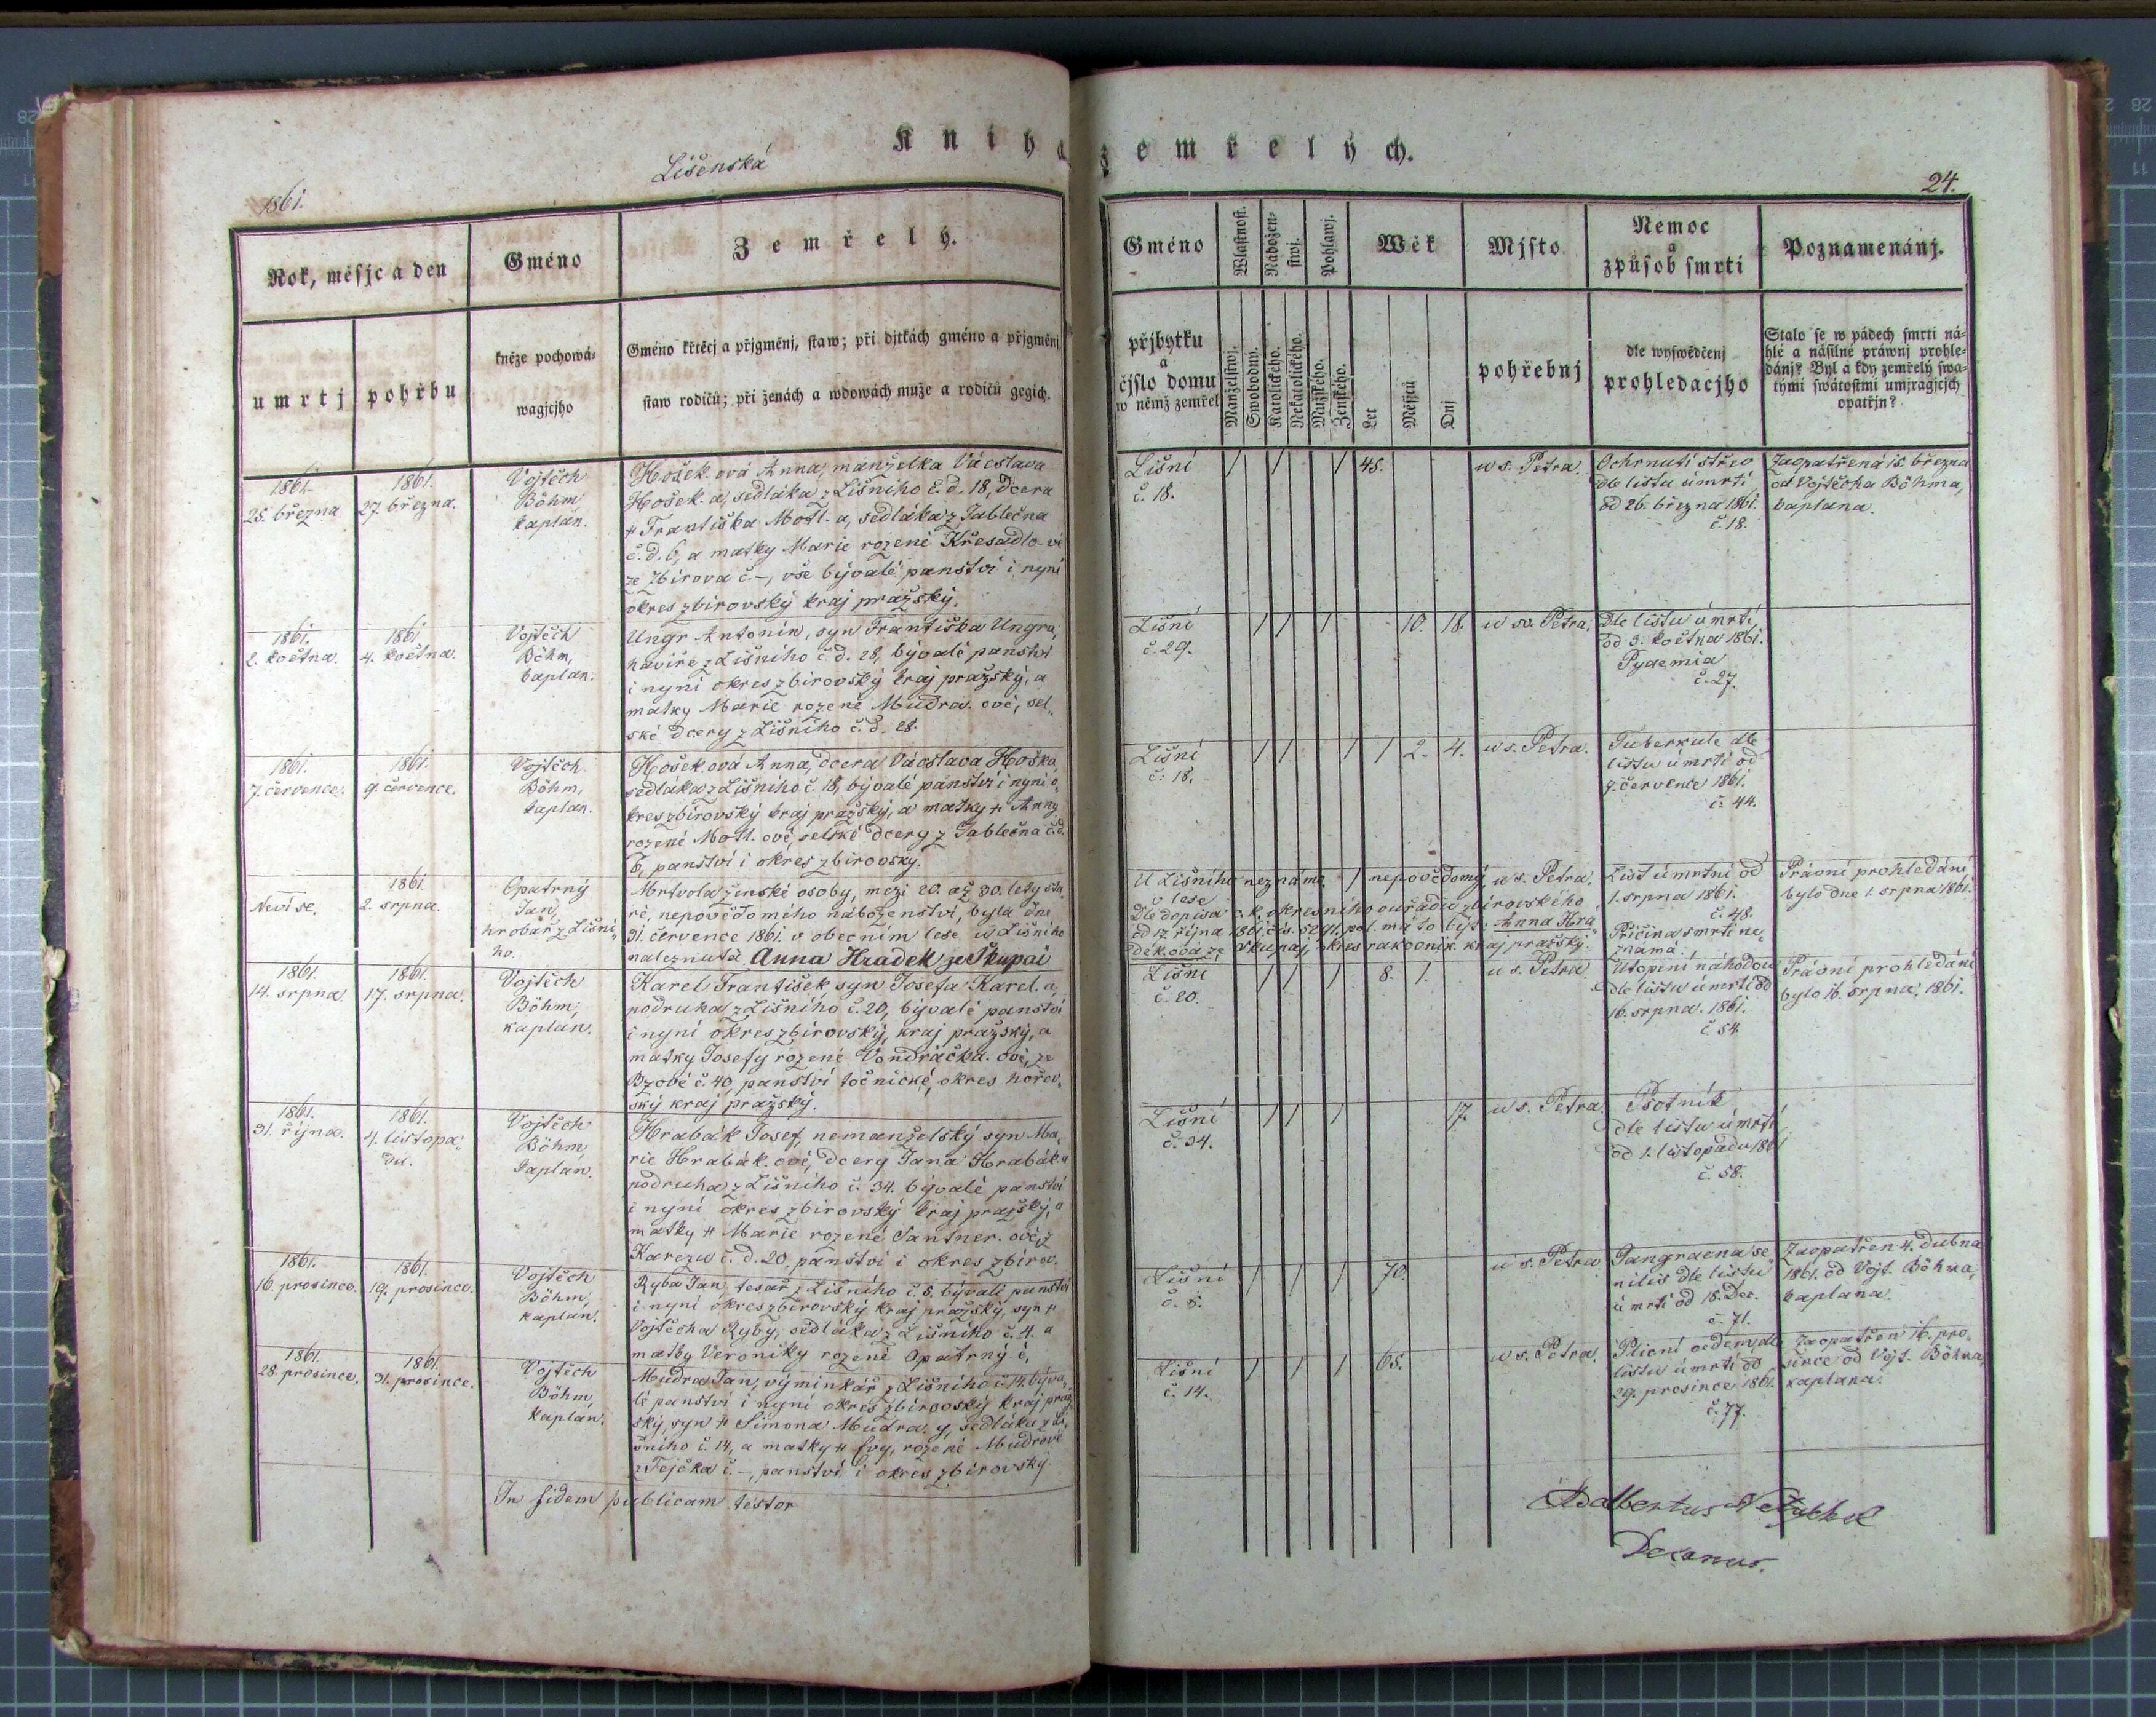 Kniha zemřelých.
Lišenská
1861.
24.
Rok, měsjc a den
Gméno
Zemřelý.
umrtj
pohřbu
kněze pochowá-
wagjcjho
Gméno křtěcj a přjgměnj, staw; při djtkách gméno a přjgměnj,
staw rodičů; při ženách a wdowách muže a rodičů gegich.
Gméno
přjbytku
a
čjslo domu
w němž zemřel
Wlastnost.
Manželstwj.
Swobodnw.
Nábožen-
stwj.
Katolického.
Nekatolického.
Pohlawj.
Mužského.
Ženského.
Wěk
Let
Měsjců
Dnj
Mjsto
pohřebnj
Nemoc
a
způsob smrti
dle wyswědčenj
prohledacjho
Poznamenánj.
Stalo se w pádech smrti ná-
hlé a násilné práwnj prohle-
dánj? Byl a kdy zemřelý swa-
tými swátostmi umjragjcjch
opatřjn?
1861.
25. března
1861.
27. března.
Vojtěch
Böhm
kaplan.
Hošek. ová Anna, manželka Vácslava
Hošek. a, sedláka z Lišního č. d. 18, dcera
+ Františka Motl. a, sedláka z Jablečna
č. d. 6, a matky Marie rozené Křesadlo-vé
ze Zbirova č. –, vše bývalé panství i nyní
okres zbirovský kraj pražský.
Lišní
č. 18.
/ / / 45.
u s. Petra.
Ochrnutí střev
dle listu úmrtí
od 26. března 1861.
č. 18.
Zaopatřená 15. března
od Vojtěcha Böhma,
kaplana.
1861.
2. května.
1861.
4. května.
Vojtěch
Böhm,
kaplan.
Ungr Antonín, syn Františka Ungra,
havíře z Lišního č. d. 28, bývalé panství
i nyní okres zbirovský kraj pražský, a
matky Marie rozené Mudra. ové, sel„
ské dcery z Lišního č. d. 28.
Lišní
č. 29.
/ / / 10. 18.
u sv. Petra.
Dle listu úmrtí,
od 3. května 1861.
Pyaemia
č. 27.
1861.
7. července.
1861.
9. července.
Vojtěch
Böhm,
kaplan.
Hošek. ová Anna, dcera Vácslava Hoška
sedláka z Lišního č. 18, bývalé panství i nyní o„
kres zbirovský kraj pražský, a matky + Anny
rozené Motl. ové, selské dcery z Jablečna č. d.
6, panství i okres zbirovský.
Lišní
č. 18.
/ / / 1 2. 4.
u s. Petra.
Tuberkule dle
listu úmrtí od
9. července 1861.
č. 44.
Neví se.
1861.
2. srpna.
Opatrný
Jan,
hrobař z Lišní„
ho.
Mrtvola ženské osoby, mezi 20. až 30. lety sta„
ré, nepovědomého náboženství, byla dne
31. července 1861. v obecním lese u Lišního
naleznuta. Anna Hradek ze Skupai
U Lišního neznámo / nepovědomý u s. Petra.
v lese
Dle dopisu c. k. okresního ouřadu zbirovského
od 17. října 1861. čís. 5291. pol. má to být: Anna Hra„
dek. ová ze Skupaj, okres rakovnik. kraj pražský.
List úmrtní od
1. srpna 1861.
č. 48.
Příčina smrti ne„
známá.
Právní prohledání
bylo dne 1. srpna 1861.
1861.
14. srpna.
1861.
17. srpna.
Vojtěch
Böhm,
kaplan.
Karel František syn Josefa Karel. a,
podruha z Lišního č. 20, bývalé panství
i nyní okres zbirovský, kraj pražský, a
matky Josefy rozené Vondráčka. ové, ze
Bzové č. 40, panství točnické, okres hořov„
ský kraj pražský.
Lišní
č. 20.
/ / / 8. 1.
u s. Petra.
Utopení náhodou
dle listu úmrtí od
16. srpna. 1861.
č. 54.
Právní prohledání
bylo 16. srpna. 1861.
1861.
31. října.
1861.
4. listopa„
du.
Vojtěch
Böhm,
kaplan.
Hrabák Josef, nemanželský syn Ma„
rie Hrabák. ové, dcery Jana Hrabák. a
podruha z Lišního č. 34. bývalé panství
i nyní okres zbirovský kraj pražský, a
matky + Marie rozené Santner. ové, z
Karezu č. d. 20. panství i okres zbirov.
Lišní
č. 34.
/ / / 17.
u s. Petra.
Psotník
dle listu úmrtí
od 1. listopadu 1861
č. 58.
1861.
16. prosince.
1861.
19. prosince.
Vojtěch
Böhm,
kaplan.
Ryba Jan, tesař z Lišního č. 5. bývalé panství
i nyní okres zbirovský kraj pražský, syn +
Vojtěcha Ryby, sedláka z Lišního č. 4. a
matky Veroniky rozené Opatrný. é,
Lišní
č. 5.
/ / / 70.
u s. Petra.
Gangraena se„
nilis dle listu
úmrtí od 18. Dec.
č. 71.
Zaopatřen 4. dubna
1861. od Vojt. Böhma,
kaplana.
1861.
28. prosince.
1861.
31. prosince.
Vojtěch
Böhm,
kaplan.
Mudra Jan, výminkář z Lišního č. 14, býva„
lé panství i nyní okres zbirovský kraj praž„
ský, syn + Šimona Mudra. y, sedláka z Li„
šního č. 14, a matky + Evy, rozené Mudrové
z Tejčka č. –, panství i okres zbirovský.
Lišní
č. 14.
/ / / 65.
u s. Petra.
Plicní oedem, dle
listu úmrtí od
29. prosince 1861.
č. 77.
Zaopatřen 16. pro„
since od Vojt. Böhma,
kaplana.
In fidem publicam testor
Adalbertus
Decanus.